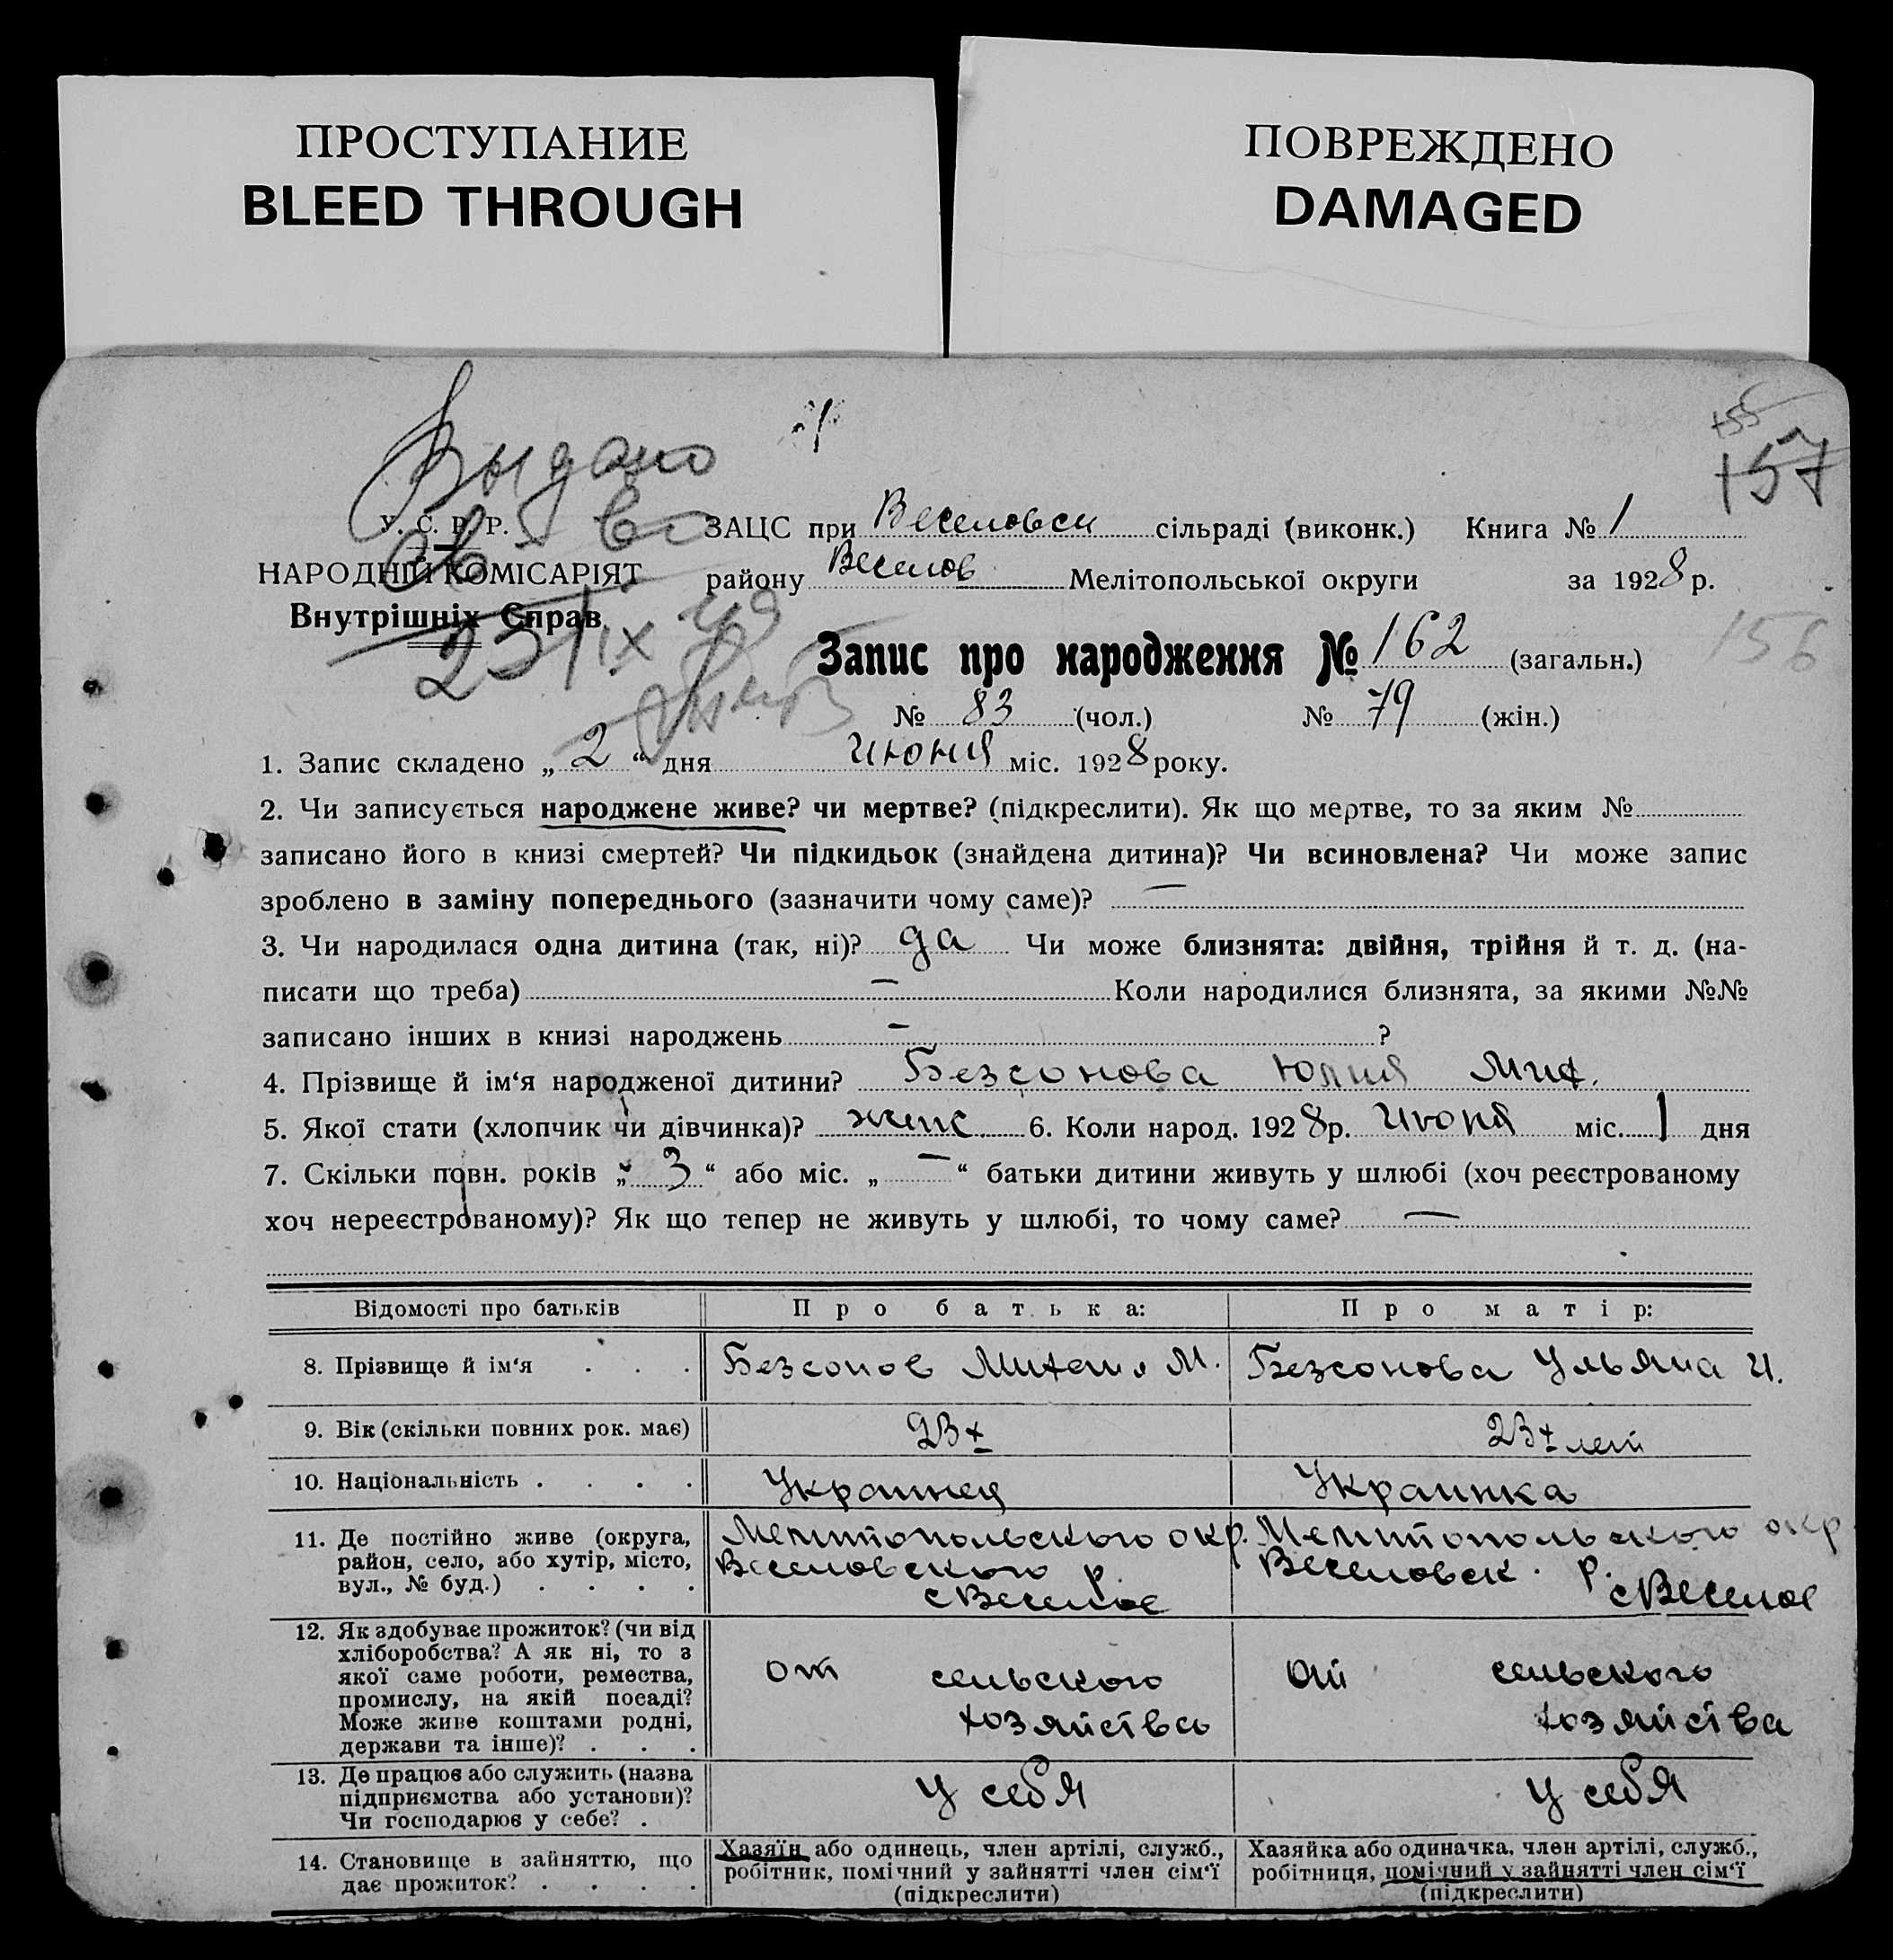 ПРОСТУПАНИЕ
BLEED THROUGH
ПОВРЕЖДЕНО
DAMAGED
155
157
Выдано
У. С. Р. Р.
НАРОДНІЙ КОМІСАРІЯТ
Внутрішніх Справ
ЗАЦС при Веселовск сільраді (виконк.) Книга № 1
району Веселов Мелітопольської округи за 1928 р.
156
Запис про народження № 162 (загальн.)
№ 83 (чол.) № 79 (жін.)
1. Запис складено „ 2 “ дня июня міс. 1928 року.
2. Чи записується народжене живе? чи мертве? (підкреслити). Як що мертве, то за яким №
записано його в книзі смертей? Чи підкидьок (знайдена дитина)? Чи всиновлена? Чи може запис
зроблено в заміну попереднього (зазначити чому саме)? —
3. Чи народилася одна дитина (так, ні)? да Чи може близнята: двійня, трійня й т. д. (на-
писати що треба) — Коли народилися близнята, за якими №№
записано інших в книзі народжень — ?
4. Прізвище й ім‘я народженої дитини? Безсонова Юлия Мих.
5. Якої стати (хлопчик чи дівчинка)? женс 6. Коли народ. 1928 р. Июня міс. 1 дня
7. Скільки повн. років „ 3 “ або міс. „ — “ батьки дитини живуть у шлюбі (хоч реєстрованому
хоч нереєстрованому)? Як що тепер не живуть у шлюбі, то чому саме? —
Відомості про батьків Про батька: Про матір:
8. Прізвище й ім‘я . . . Безсонов Михаил М. Безсонова Ульяна И.
9. Вік (скільки повних рок. має) 23 х 23 х лет
10. Національність . . . . Украинец Украинка
11. Де постійно живе (округа,
район, село, або хутір, місто,
вул., № буд.) . . . .
Мелитопольского окр.
Веселовского р.
с Веселое
Мелитопольского окр
Веселовск. р.
с Веселое
12. Як здобуває прожиток? (чи від
хліборобства? А як ні, то з
якої саме роботи, ремества,
промислу, на якій посаді?
Може живе коштами родні,
держави та інше)? . . .
от сельского
хозяйства
от сельского
хозяйства
13. Де працює або служить (назва
підприємства або установи)?
Чи господарює у себе? .
у себя
у себя
14. Становище в зайняттю, що
дає прожиток? . . . .
Хазяїн або одинець, член артілі, служб.,
робітник, помічний у зайнятті член сім‘ї
(підкреслити)
Хазяйка або одиначка, член артілі, служб.,
робітниця, помічний у зайнятті член сім‘ї
(підкреслити)